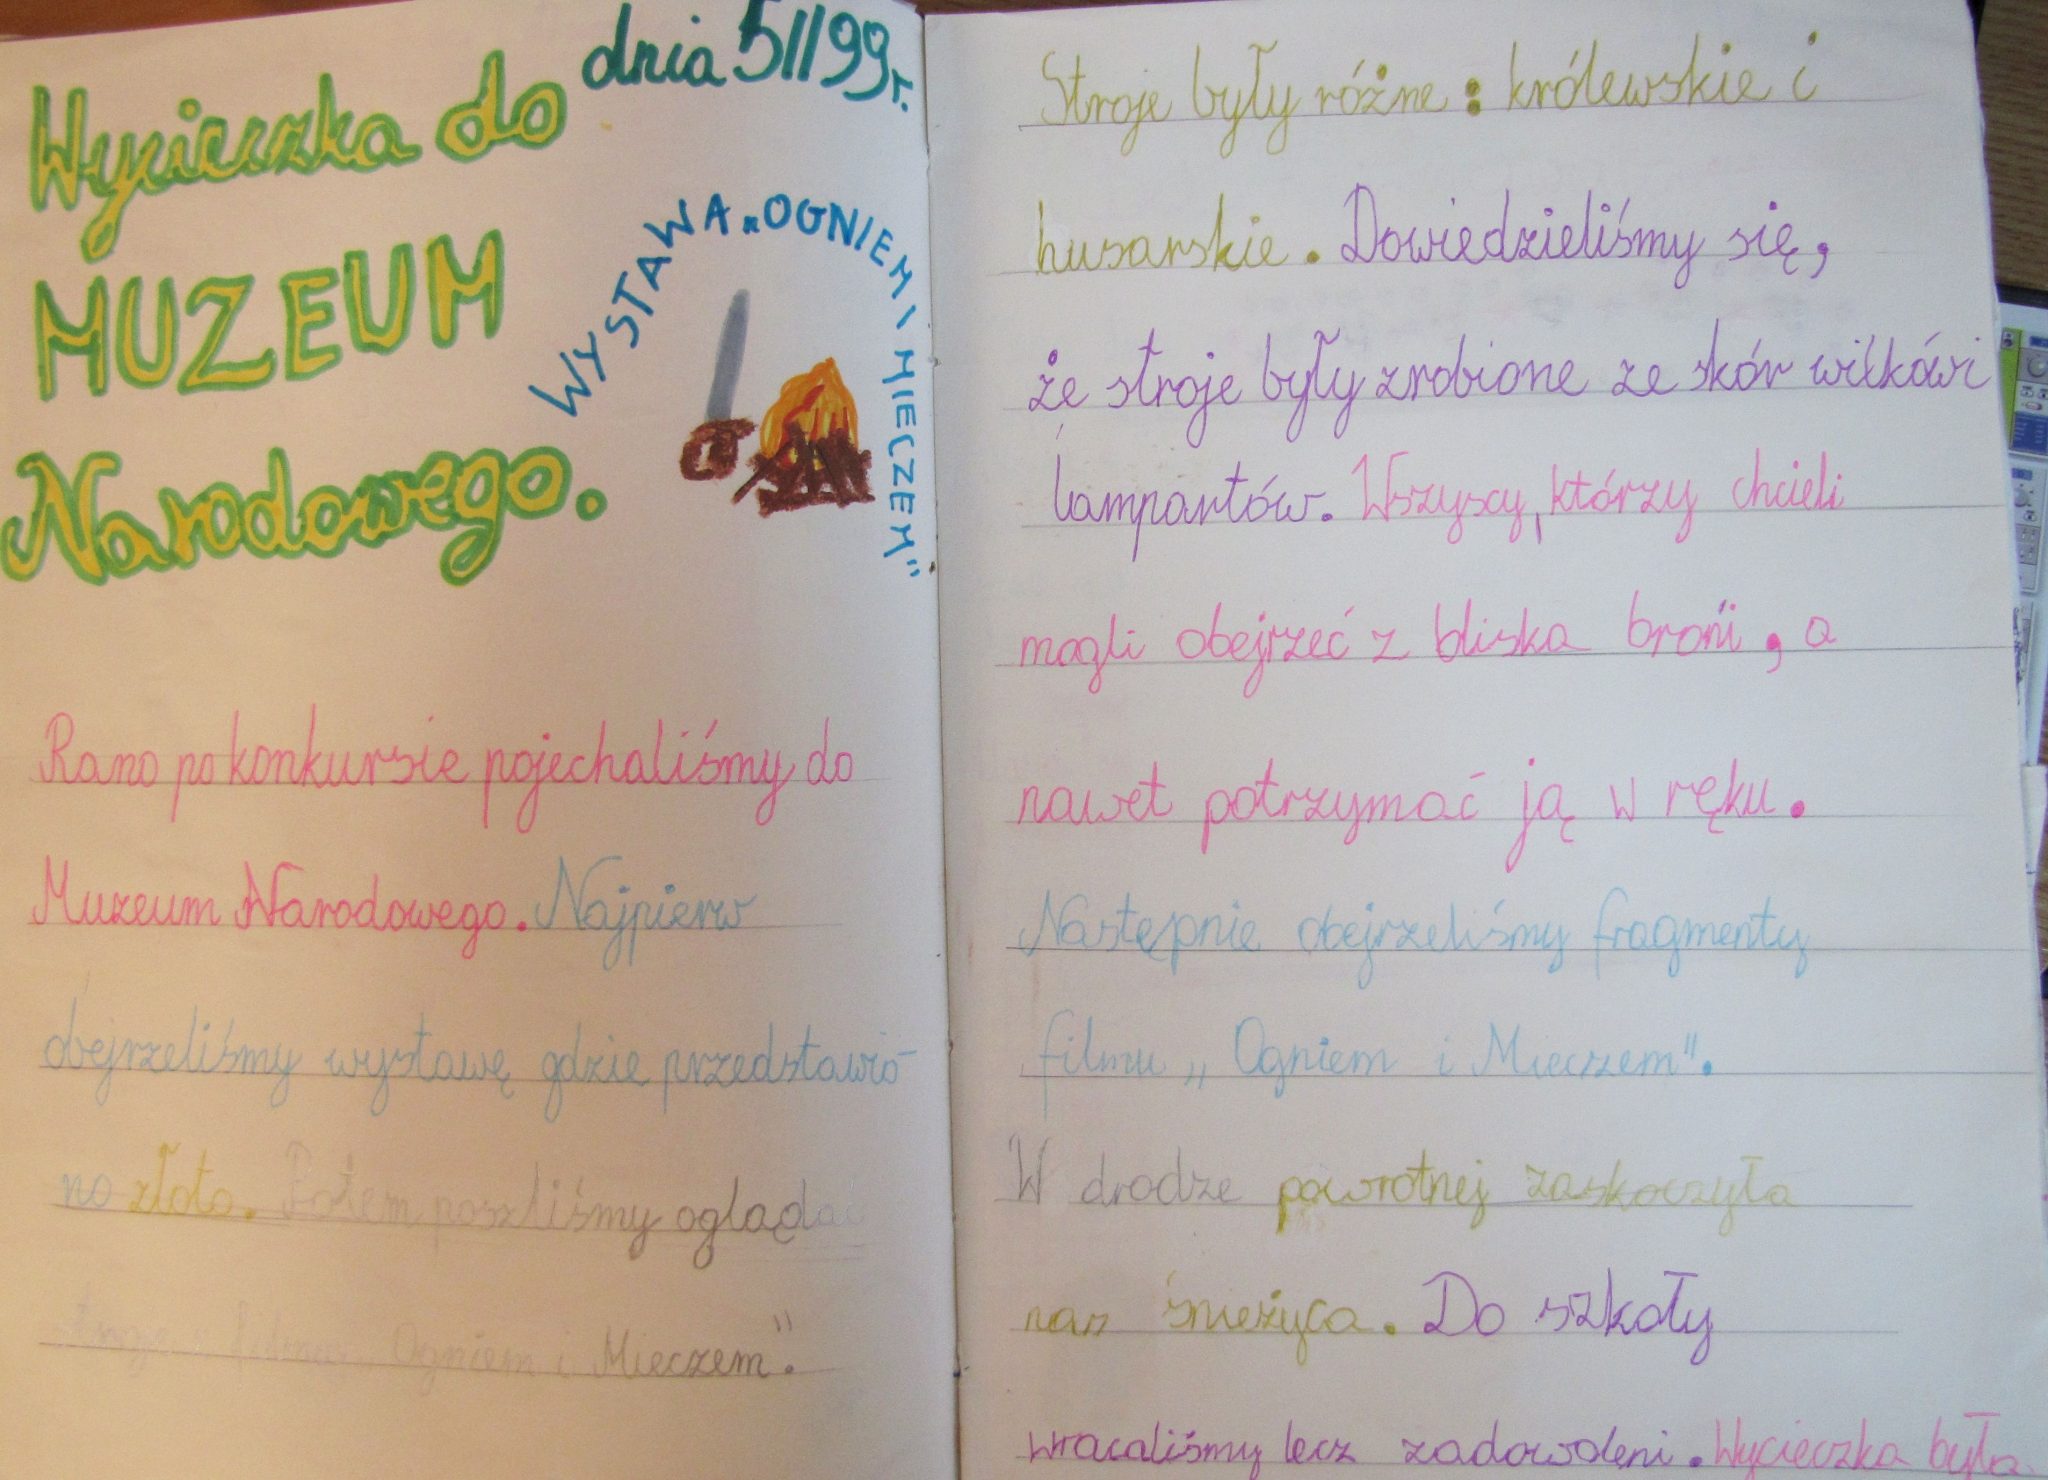 dnia 5II99r.
Wycieczka do
MUZEUM
Narodowego.
WYSTAWA „OGNIEM I MIECZEM"
Rano po konkursie pojechaliśmy do
Muzeum Narodowego. Najpierw
obejrzeliśmy wystawę gdzie przedstawio-
no złoto. Potem poszliśmy oglądać
filmu Ogniem i Mieczem".
Stroje były różne: królewskie i
husarskie. Dowiedzieliśmy się,
że stroje były zrobione ze skór wilków i
lampartów. Wszyscy, którzy chcieli
mogli obejrzeć z bliska broń, a
nawet potrzymać ją w ręku.
Następnie obejrzeliśmy fragmenty
filmu „Ogniem i Mieczem".
W drodze powrotnej zaskoczyła
nas śnieżyca. Do szkoły
wracaliśmy lecz zadowoleni. Wycieczka była